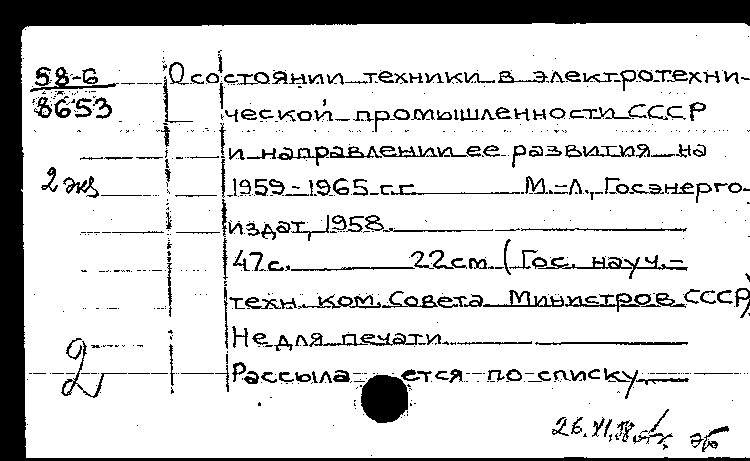 58-6
8653
2 экз
О состоянии техники в электротехни-
ческой промышленности СССР
и направлении ее развития на
1959-1965 г.г. М.-Л., Госэнерго-
издат, 1958.
47с. 22см (Гос. науч.-
техн. ком. Совета Министров СССР)
Не для печати
Рассылается по списку.
2
26.XI.18